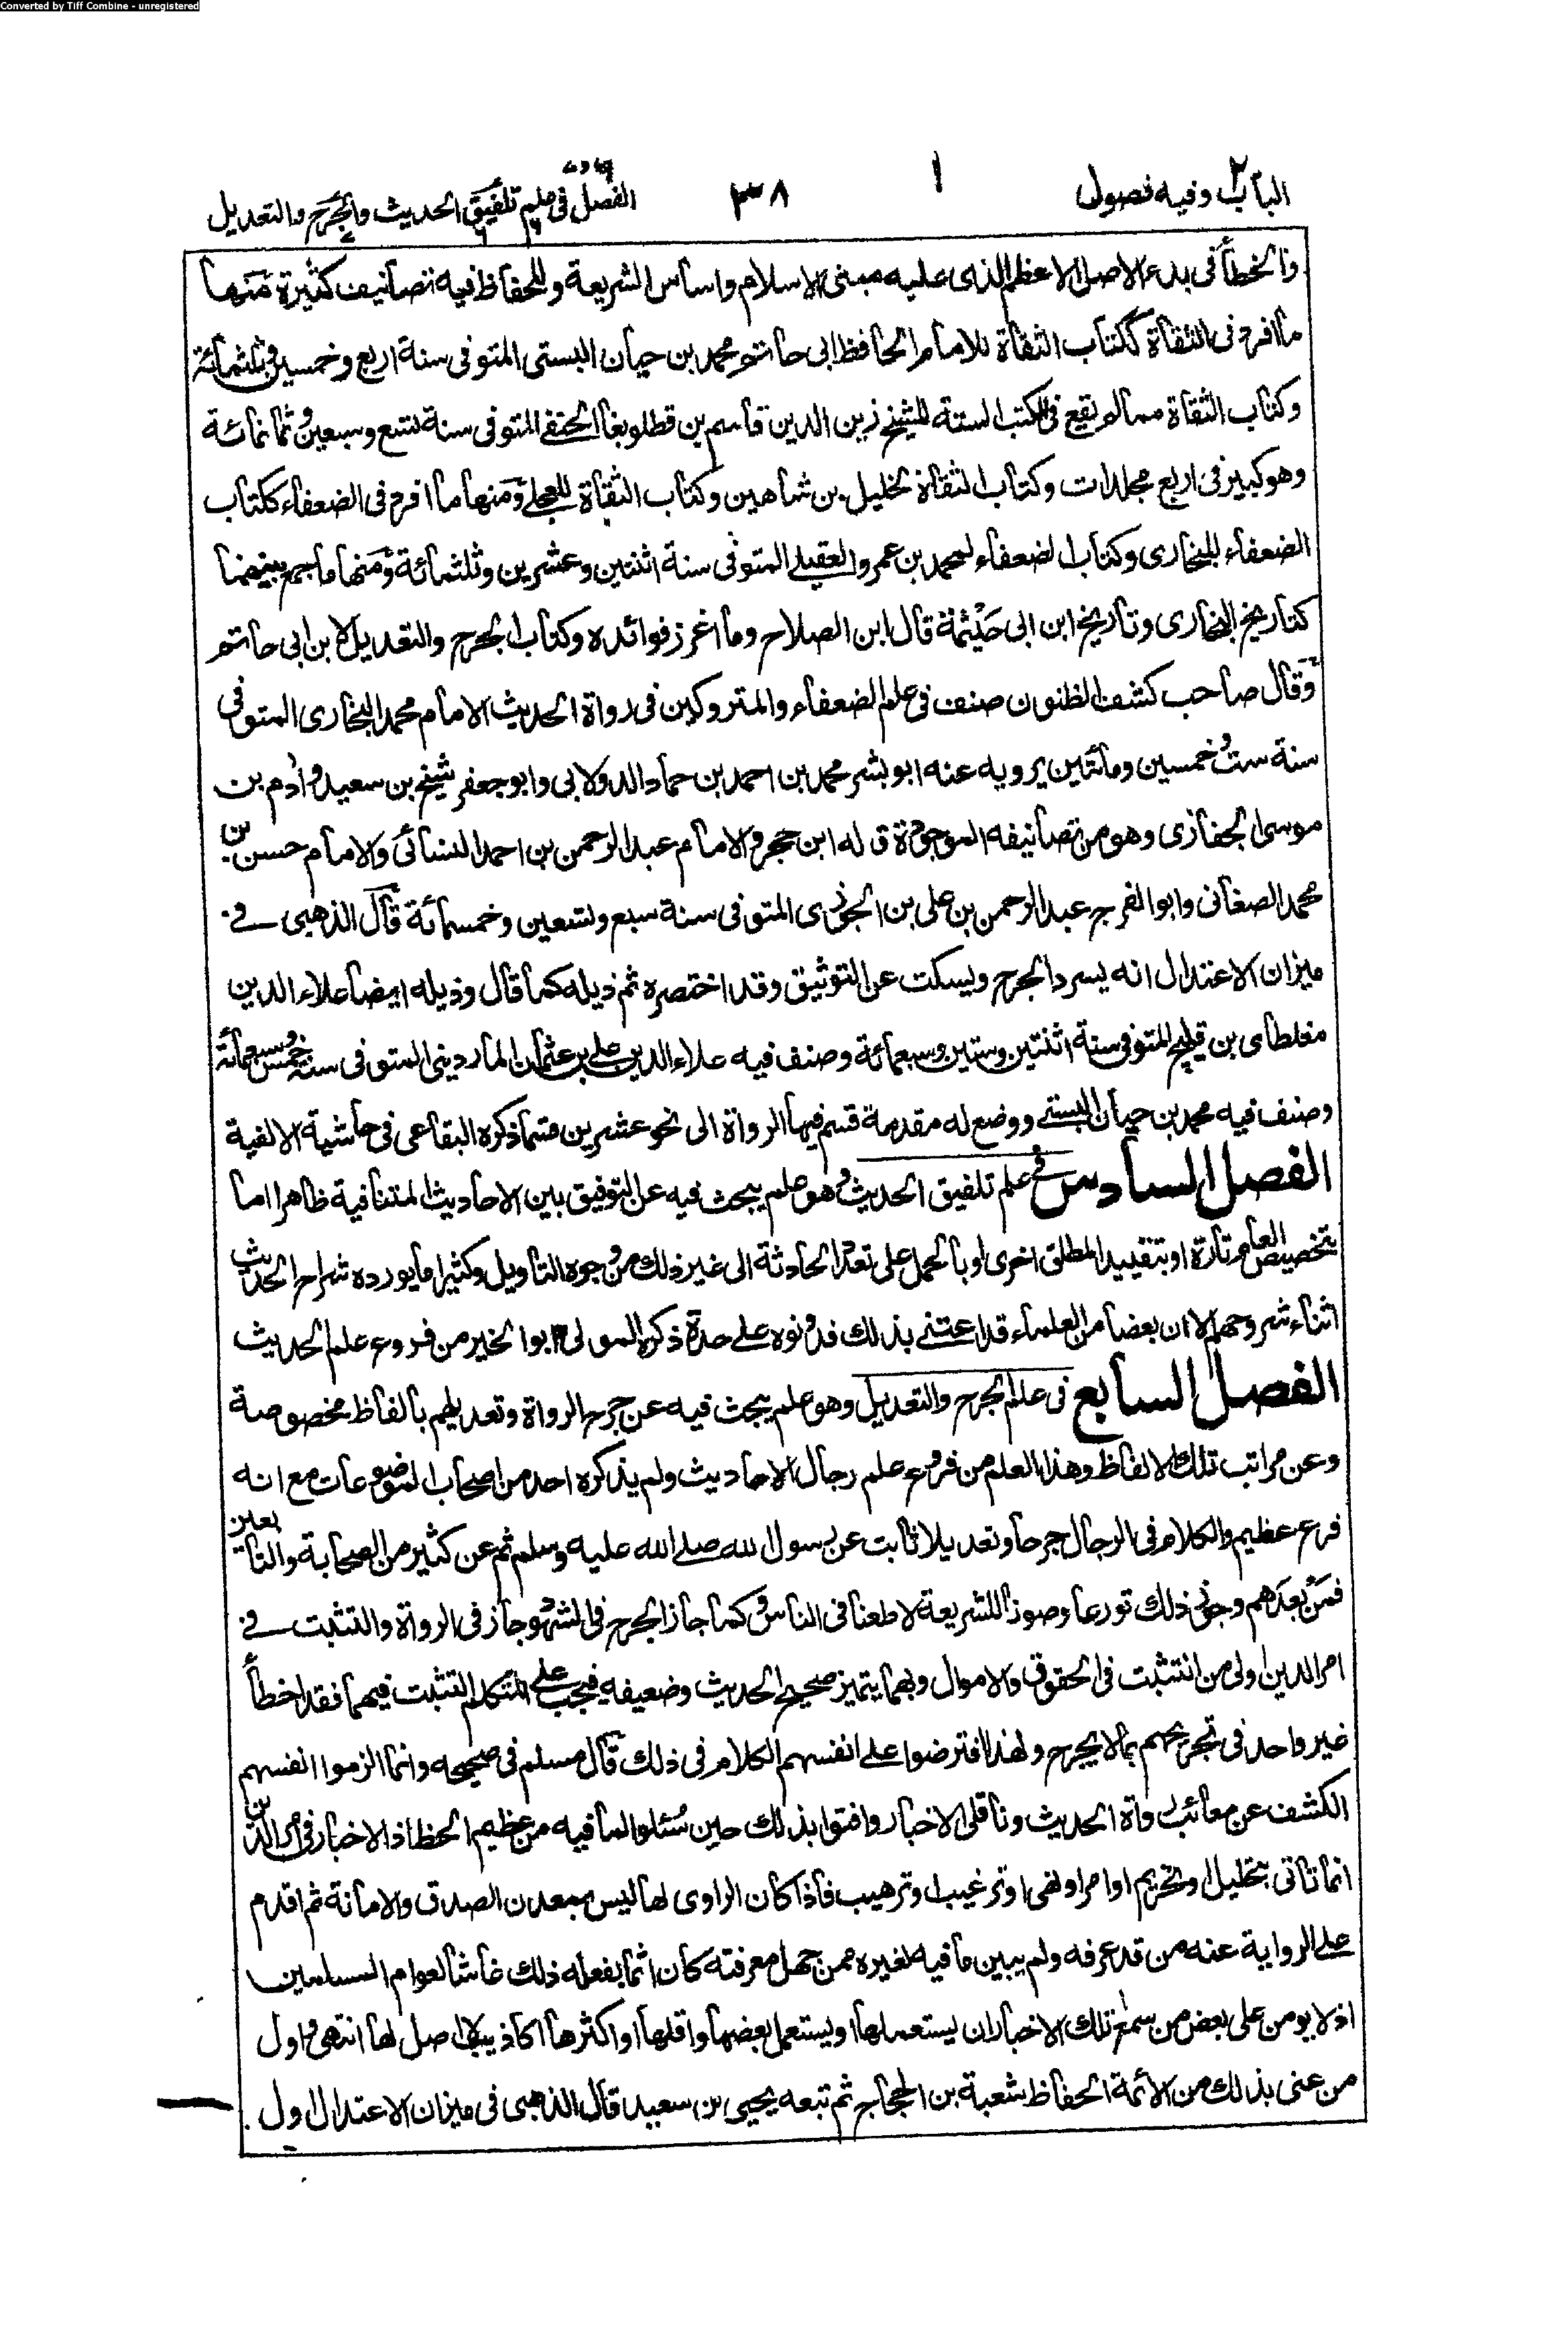 Converted by Tiff Combine - unregistered
الباب ٢ وفيه فصول ٣٨ الفصل ٦ و ٧ في علم تلفيق الحديث والجرح والتعديل
والخطأ فى بدء الاصل الاعظم الذى عليه مبنى الاسلام واساس الشريعة وللحفاظ فيه تصانيف كثيرة منها
ما افرد فى الثقاة ككتاب الثقاة للامام الحافظ ابى حاتم محمد بن حبان البستى المتوفى سنة اربع وخمسين وثلثمائة
وكتاب الثقاة ممالم يقع فى الكتب الستة للشيخ زين الدين قاسم بن قطلوبغا الحنفى المتوفى سنة تسع وسبعين وثمانمائة
وهو كبير فى اربع مجلدات وكتاب الثقاة لخليل بن شاهين وكتاب الثقاة للعجلى ومنها ما افرد فى الضعفاء ككتاب
الضعفاء للبخارى وكتاب الضعفاء لمحمد بن عمرو العقيلى المتوفى سنة اثنتين وعشرين وثلثمائة ومنها ما جمع بينهما
كتاريخ البخارى وتاريخ ابن ابى خيثمة قال ابن الصلاح وما اغرز فوائده وكتاب الجرح والتعديل لابن ابى حاتم
وقال صاحب كشف الظنون صنف فى علم الضعفاء والمتروكين فى رواة الحديث الامام محمد البخارى المتوفى
سنة ست وخمسين ومائتين يرويه عنه ابو بشر محمد بن احمد بن حماد الدولابى وابو جعفر شيخ بن سعيد وادم بن
موسى الجفازى وهو من تصانيفه الموجودة ق له ابن حجر والامام عبد الرحمن بن احمد النسائى والامام حسن بن
محمد الصغانى وابو الفرج عبد الرحمن بن على بن الجوزى المتوفى سنة سبع وتسعين وخمسمائة قال الذهبى فى
ميزان الاعتدال انه يسرد الجرح ويسكت عن التوثيق وقد اختصره ثم ذيله كما قال وذيله ايضا علاء الدين
مغلطاى بن قليج المتوفى سنة اثنتين وستين وسبعمائة وصنف فيه علاء الدين على بن عثمان الماردينى المتوفى سنة خمس وسبعمائة
وصنف فيه محمد بن حبان البستى ووضع له مقدمة قسم فيها الرواة الى نحو عشرين قسما ذكره البقاعى فى حاشية الالفية
الفصل السادس فى علم تلفيق الحديث وهو علم يبحث فيه عن التوفيق بين الاحاديث المتنافية ظاهرا اما
بتخصيص العام تارة او بتقييد المطلق اخرى او بالحمل على تعدد الحادثة الى غير ذلك من وجوه التاويل وكثيرا ما يورده شراح الحديث
اثناء شروحهم الا ان بعضا من العلماء قد اعتنى بذلك فدونوه على حدة ذكره المولى ابو الخير من فروع علم الحديث
الفصل السابع فى علم الجرح والتعديل وهو علم يبحث فيه عن جرح الرواة وتعديلهم بالفاظ مخصوصة
وعن مراتب تلك الالفاظ وهذا العلم من فروع علم رجال الاحاديث ولم يذكره احد من اصحاب الموضوعات مع انه
فرع عظيم والكلام فى الرجال جرحا وتعديلا ثابت عن رسول الله صلى الله عليه وسلم ثم عن كثير من الصحابة والتابعين
فمن بعدهم وجوز ذلك تورعا وصونا للشريعة لا طعنا فى الناس وكما جاز الجرح فى الشهود جاز فى الرواة والتثبت فى
امر الدين اولى من التثبت فى الحقوق والاموال وبهما يتميز صحيح الحديث وضعيفه فيجب على المتكلم التثبت فيهما فقد اخطأ
غير واحد فى تجريحهم بما لا يجرح ولهذا افترضوا على انفسهم الكلام فى ذلك قال مسلم فى صحيحه وانما الزموا انفسهم
الكشف عن معائب رواة الحديث وناقلى الاخبار وافتوا بذلك حين سئلوا لما فيه من عظيم الحظ اذ الاخبار فى امر الدين
انما تاتى بتحليل او تحريم او امر او نهى او ترغيب او ترهيب فاذا كان الراوى لها ليس بمعدن الصدق والامانة ثم اقدم
على الرواية عنه من قد عرفه ولم يبين ما فيه لغيره ممن جهل معرفته كان اثما بفعله ذلك غاشا لعوام المسلمين
اذ لا يومن على بعض من سمع تلك الاخبار ان يستعملها او يستعمل بعضها واقلها او اكثرها اكاذيب لا اصل لها انتهى واول
من عنى بذلك من الأئمة الحفاظ شعبة بن الحجاج ثم تبعه يحيى بن سعيد قال الذهبى فى ميزان الاعتدال اول